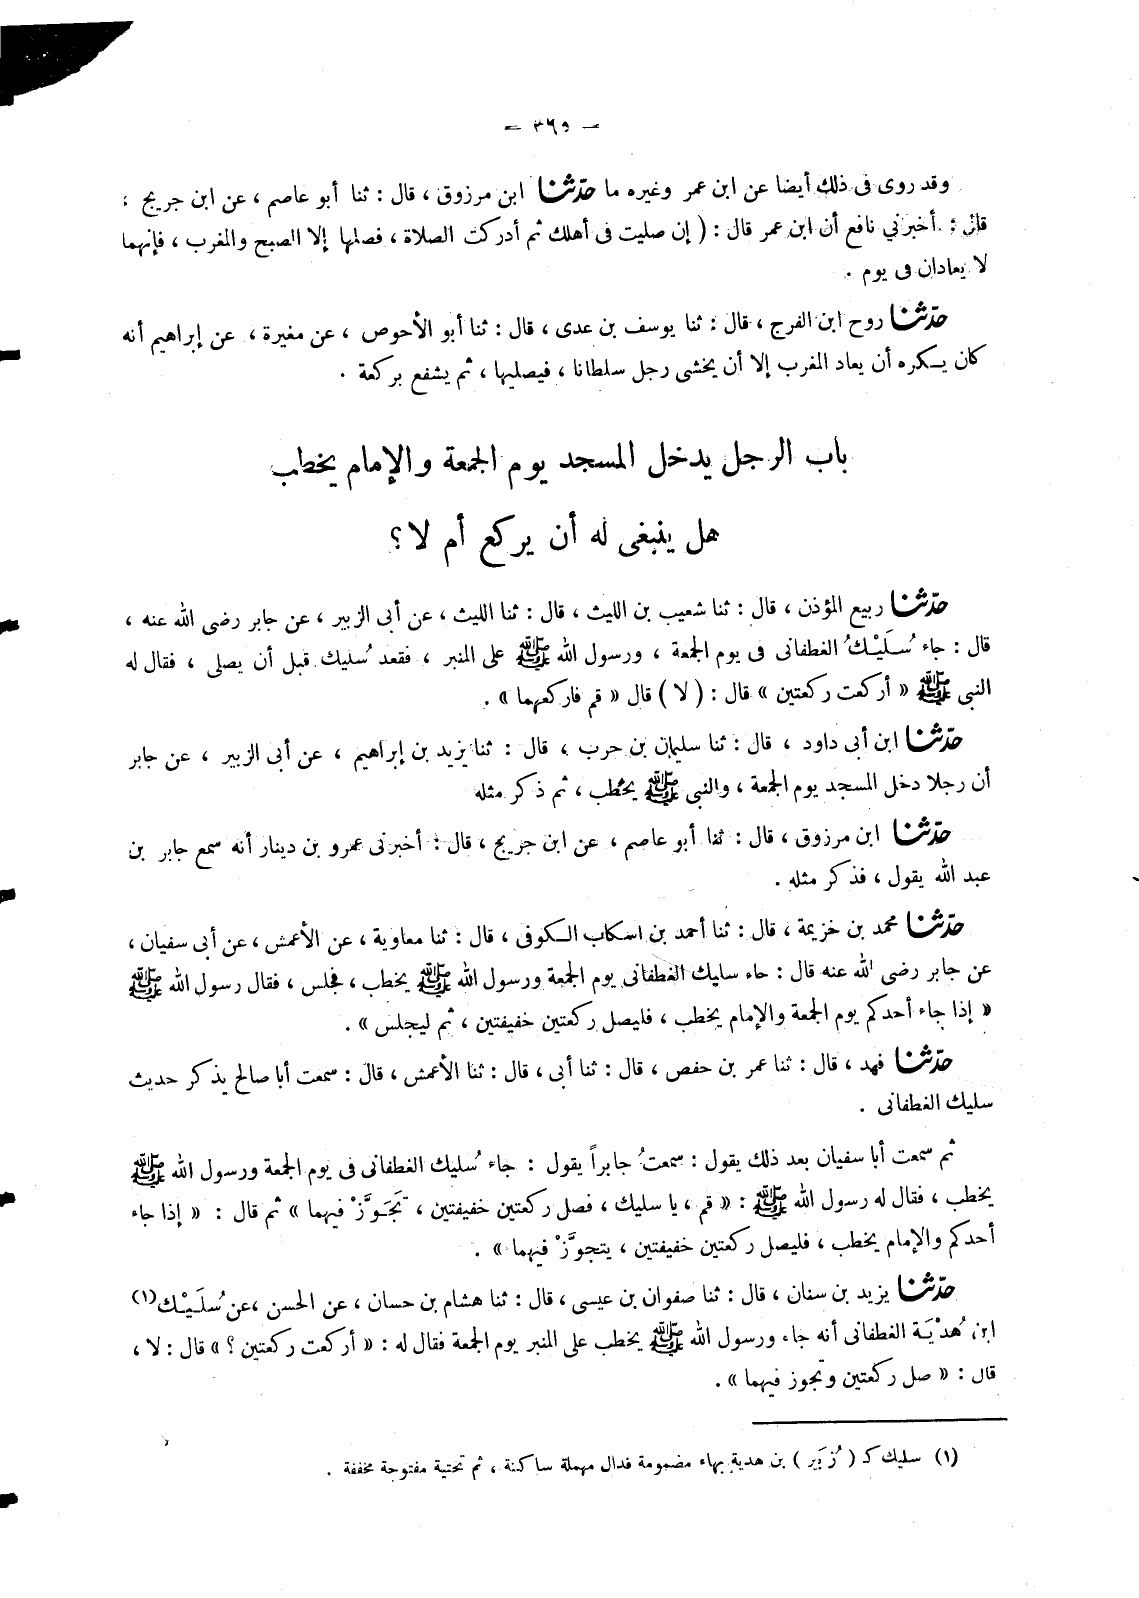 — ٣٦٥ —
وقد روى فى ذلك أيضا عن ابن عمر وغيره ما حدّثنا ابن مرزوق ، قال : ثنا أبو عاصم ، عن ابن جريج ،
قال : أخبرني نافع أن ابن عمر قال : ( إن صليت فى أهلك ثم أدركت الصلاة ، فصلها إلا الصبح والمغرب ، فإنهما
لا يعادان فى يوم .
حدّثنا روح ابن الفرج ، قال : ثنا يوسف بن عدى ، قال : ثنا أبو الأحوص ، عن مغيرة ، عن إبراهيم أنه
كان يكره أن يعاد المغرب إلا أن يخشى رجل سلطانا ، فيصليها ، ثم يشفع بركعة .
باب الرجل يدخل المسجد يوم الجمعة والإمام يخطب
هل ينبغى له أن يركع أم لا ؟
حدّثنا ربيع المؤذن ، قال : ثنا شعيب بن الليث ، قال : ثنا الليث ، عن أبى الزبير ، عن جابر رضى الله عنه ،
قال : جاء سُلَيْكُ الغطفانى فى يوم الجمعة ، ورسول الله ﷺ على المنبر ، فقعد سُليك قبل أن يصلى ، فقال له
النبى ﷺ « أركعت ركعتين » قال : ( لا ) قال « قم فاركعهما » .
حدّثنا ابن أبى داود ، قال : ثنا سليمان بن حرب ، قال : ثنا يزيد بن إبراهيم ، عن أبى الزبير ، عن جابر
أن رجلا دخل المسجد يوم الجمعة ، والنبى ﷺ يخطب ، ثم ذكر مثله
حدّثنا ابن مرزوق ، قال : ثنا أبو عاصم ، عن ابن جريج ، قال : أخبرنى عمرو بن دينار أنه سمع جابر بن
عبد الله يقول ، فذكر مثله .
حدّثنا محمد بن خزيمة ، قال : ثنا أحمد بن اسكاب الكوفى ، قال : ثنا معاوية ، عن الأعمش ، عن أبى سفيان ،
عن جابر رضى الله عنه قال : جاء سليك الغطفانى يوم الجمعة ورسول الله ﷺ يخطب ، فجلس ، فقال رسول الله ﷺ
« إذا جاء أحدكم يوم الجمعة والإمام يخطب ، فليصل ركعتين خفيفتين ، ثم ليجلس » .
حدّثنا فهد ، قال : ثنا عمر بن حفص ، قال : ثنا أبى ، قال : ثنا الأعمش ، قال : سمعت أبا صالح يذكر حديث
سليك الغطفانى .
ثم سمعت أبا سفيان بعد ذلك يقول : سمعتُ جابراً يقول : جاء سُليك الغطفانى فى يوم الجمعة ورسول الله ﷺ
يخطب ، فقال له رسول الله ﷺ : « قم ، يا سليك ، فصل ركعتين خفيفتين ، تَجَوَّزْ فيهما » ثم قال : « إذا جاء
أحدكم والإمام يخطب ، فليصل ركعتين خفيفتين ، يتجوَّزْ فيهما » .
حدّثنا يزيد بن سنان ، قال : ثنا صفوان بن عيسى ، قال : ثنا هشام بن حسان ، عن الحسن ، عن سُلَيْك(١)
ابن هُدْيَة الغطفانى أنه جاء ورسول الله ﷺ يخطب على المنبر يوم الجمعة فقال له : « أركعت ركعتين ؟ » قال : لا ،
قال : « صل ركعتين وتجوز فيهما » .
(١) سليك كـ ( زُبَير ) بن هدية بهاء مضمومة فدال مهملة ساكنة ، ثم تحتية مفتوحة مخففة .